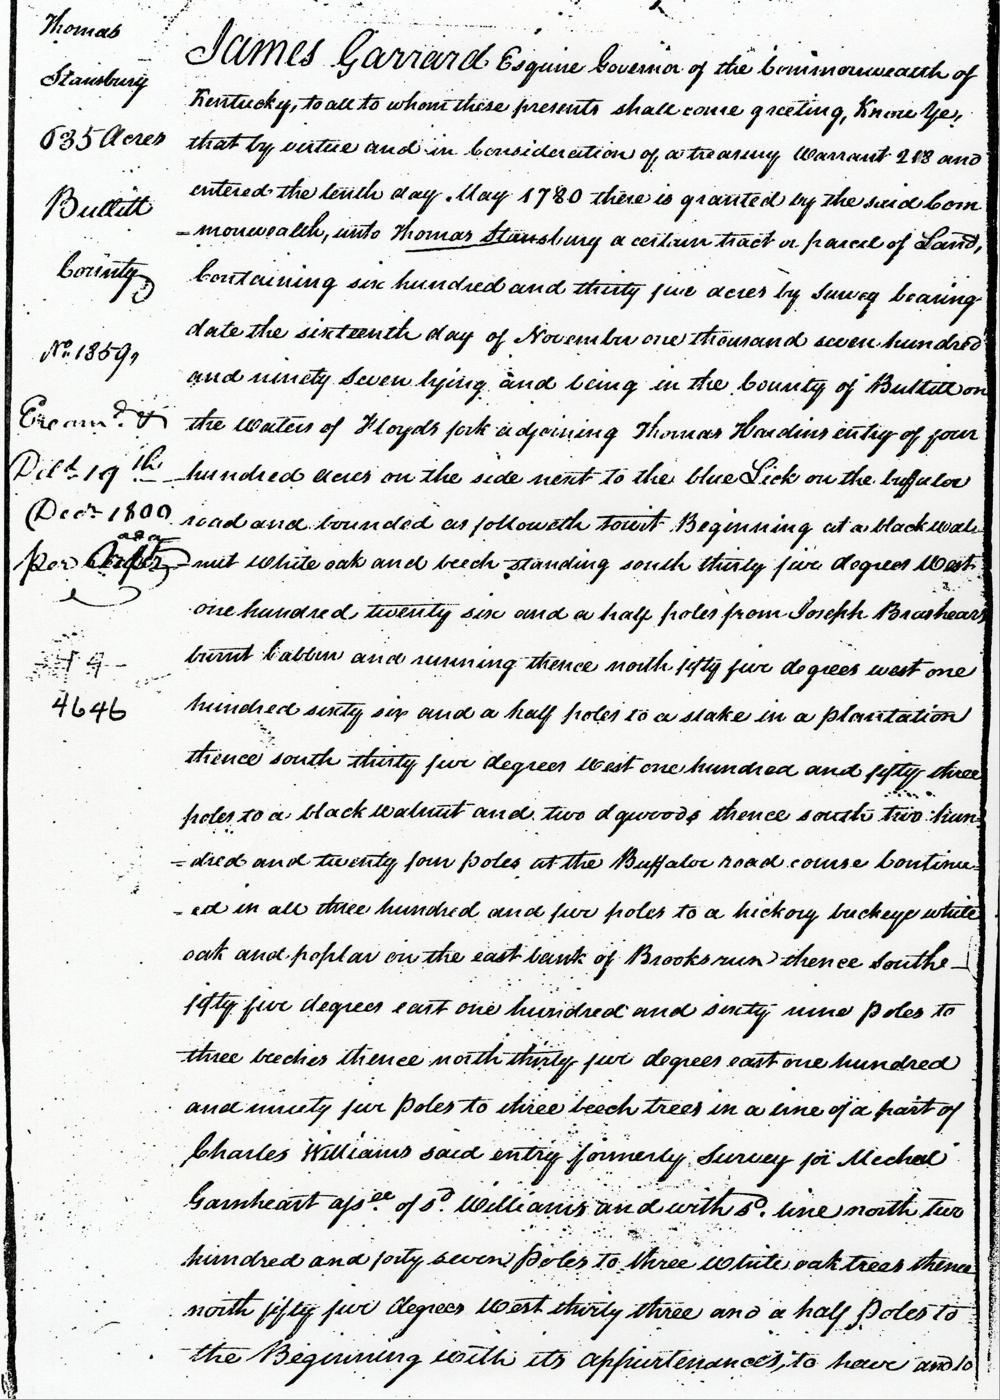 Thomas
Stansbury
635 Acres
Bullitt
County
No. 1859,
Exam.d &
Deld. 19th
Decr. 1800
per
4646
James Garrard Esquire Governor of the Commonwealth of
Kentucky, to all to whom these presents shall come greeting, Know Ye,
that by virtue and in Consideration of a treasury Warrant 218 and
entered the tenth day. May 1780 there is granted by the said Com
-monwealth, unto Thomas Stansbury a certain tract or parcel of Land,
Containing six hundred and thirty five acres by Survey bearing
date the sixteenth day of November one thousand seven hundred
and ninety Seven lying and being in the County of Bullitt on
the Waters of Floyds fork adjoining Thomas Hardins entry of four
hundred acres on the side next to the blue Lick on the buffalow
road and bounded as followeth towit Beginning at a black wal-
-nut White oak and beech standing south thirty five degrees West
one hundred twenty six and a half poles from Joseph Brashears
burnt Cabbin and running thence north fifty five degrees west one
hundred sixty six and a half poles to a stake in a plantation
thence south thirty five degrees West one hundred and fifty three
poles to a black Walnut and two dgwoods thence south two hun-
-dred and twenty four poles at the Buffalow road course Continu-
-ed in all three hundred and five poles to a hickory buckeye white
oak and poplar on the east bank of Brooks run thence Southe-
fifty five degrees east one hundred and sixty nine Poles to
three beeches thence north thirty five degrees east one hundred
and ninety five Poles to three beech trees in a line of a part of
Charles Williams said entry formerly Survey for Mechal
Garnheart assee. of sd. Williams and with sd. line north two
hundred and forty seven Poles to three White oak trees thence
north fifty five degrees West thirty three and a half Poles to
the Beginning with its appurtenances, to have and to